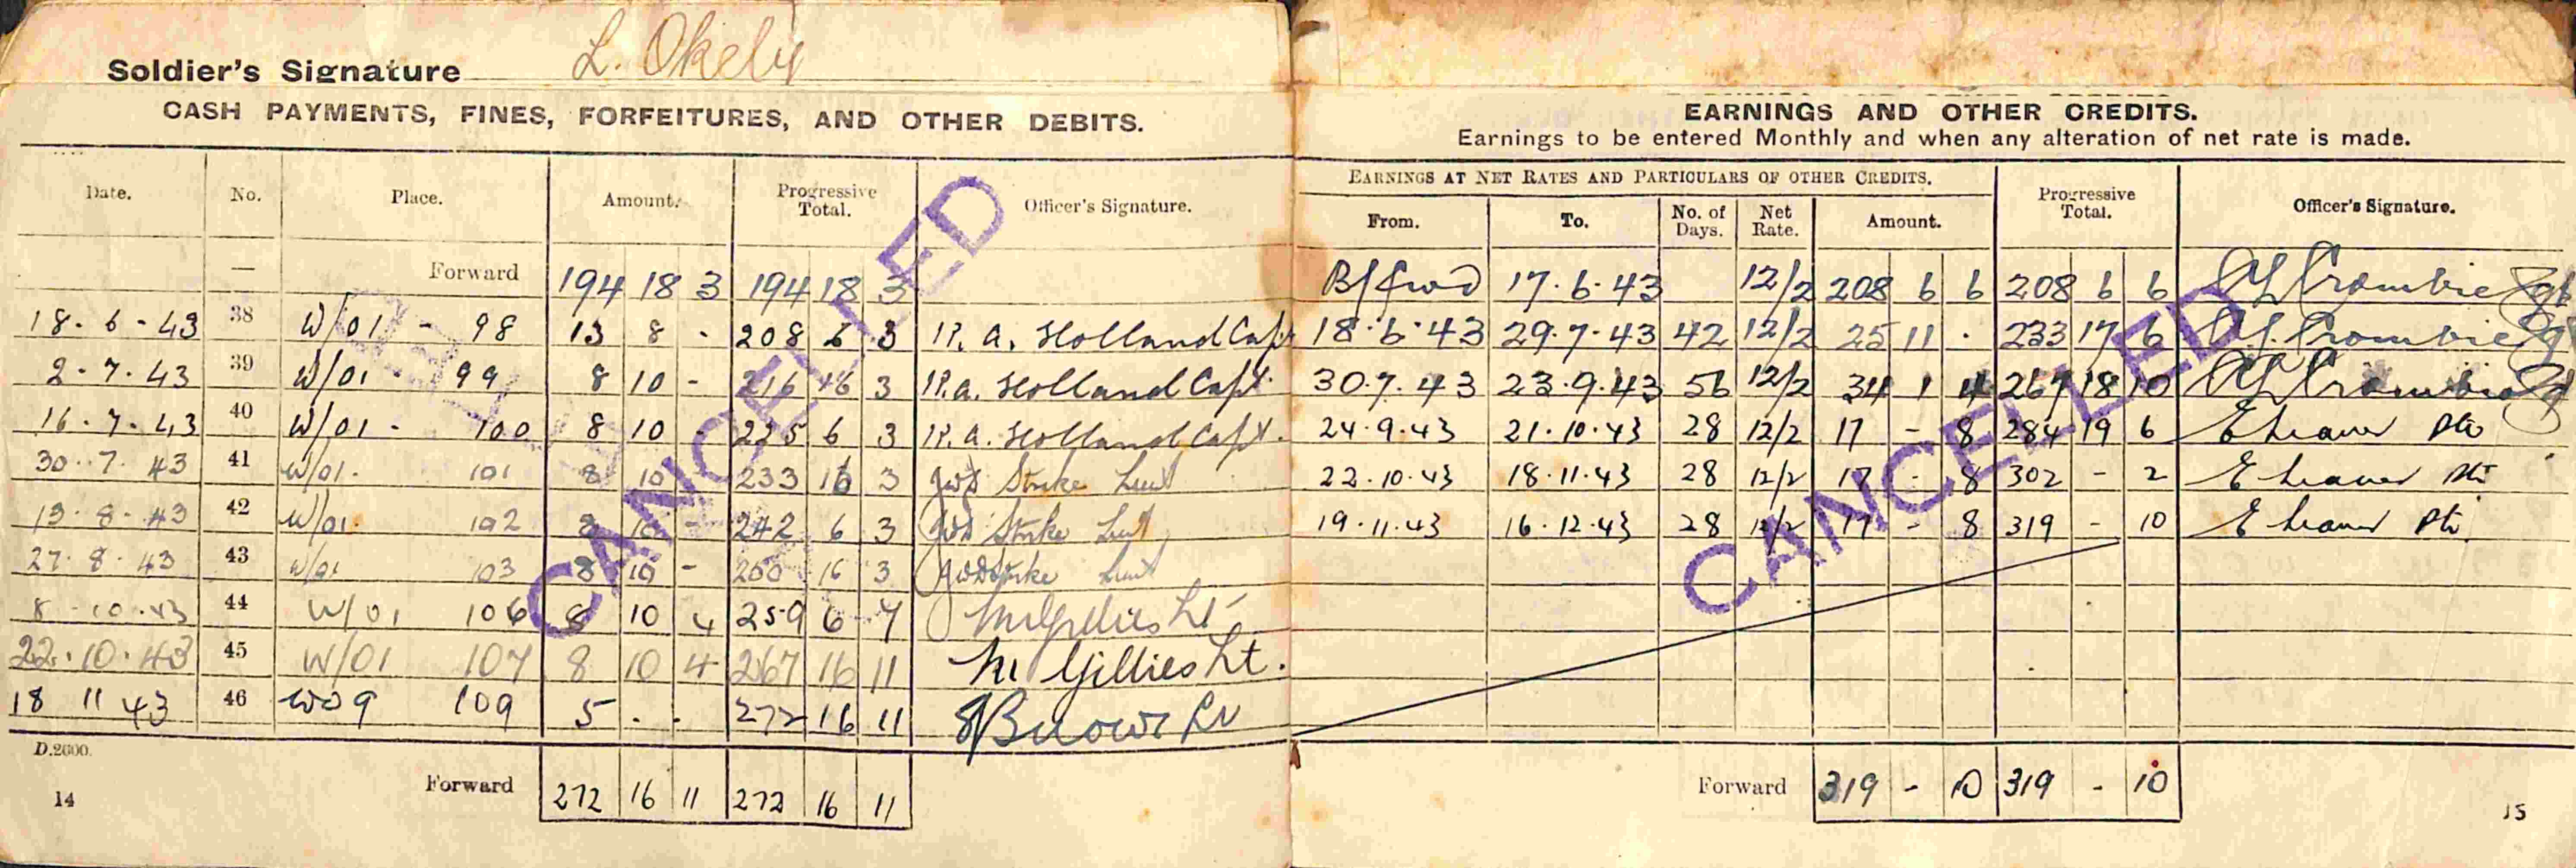 Soldier's Signature L. Okely
CASH PAYMENTS, FINES, FORFEITURES, AND OTHER DEBITS.
Date. No. Place. Amount. Progressive Total. Officer's Signature.
— Forward 194 18 3 194 18 3
18·6·43 38 W/01 - 98 13 8 - 208 6 3 R. A. Holland Capt
2·7·43 39 W/01 - 99 8 10 - 216 16 3 R. A. Holland Capt.
16·7·43 40 W/01 - 100 8 10 - 225 6 3 R. A. Holland Capt.
30·7·43 41 W/01· 101 8 10 - 233 16 3 Lieut
13·8·43 42 W/01· 102 8 10 - 242 6 3 Lieut
27·8·43 43 W/01 103 8 10 - 250 16 3 Lieut
8·10·43 44 W/01 106 8 10 4 259 6 7 M Gillies Lt
22·10·43 45 W/01 107 8 10 4 267 16 11 M Gillies Lt.
18 11 43 46 W09 109 5 - - 272 16 11
D.2600.
Forward 272 16 11 272 16 11
14
CANCELLED
EARNINGS AND OTHER CREDITS.
Earnings to be entered Monthly and when any alteration of net rate is made.
EARNINGS AT NET RATES AND PARTICULARS OF OTHER CREDITS. Progressive Total. Officer's Signature.
From. To. No. of Days. Net Rate. Amount.
B/fwd 17·6·43 12/2 208 6 6 208 6 6 Crombie Sgt
18·6·43 29·7·43 42 12/2 25 11 · 233 17 6 Crombie Sgt
30·7·43 23·9·43 56 12/2 34 1 4 267 18 10 Crombie Sgt
24·9·43 21·10·43 28 12/2 17 - 8 284 19 6 Pte
22·10·43 18·11·43 28 12/2 17 - 8 302 - 2 Pte
19·11·43 16·12·43 28 12/2 17 - 8 319 - 10 Pte
Forward 319 - 10 319 - 10
15
CANCELLED